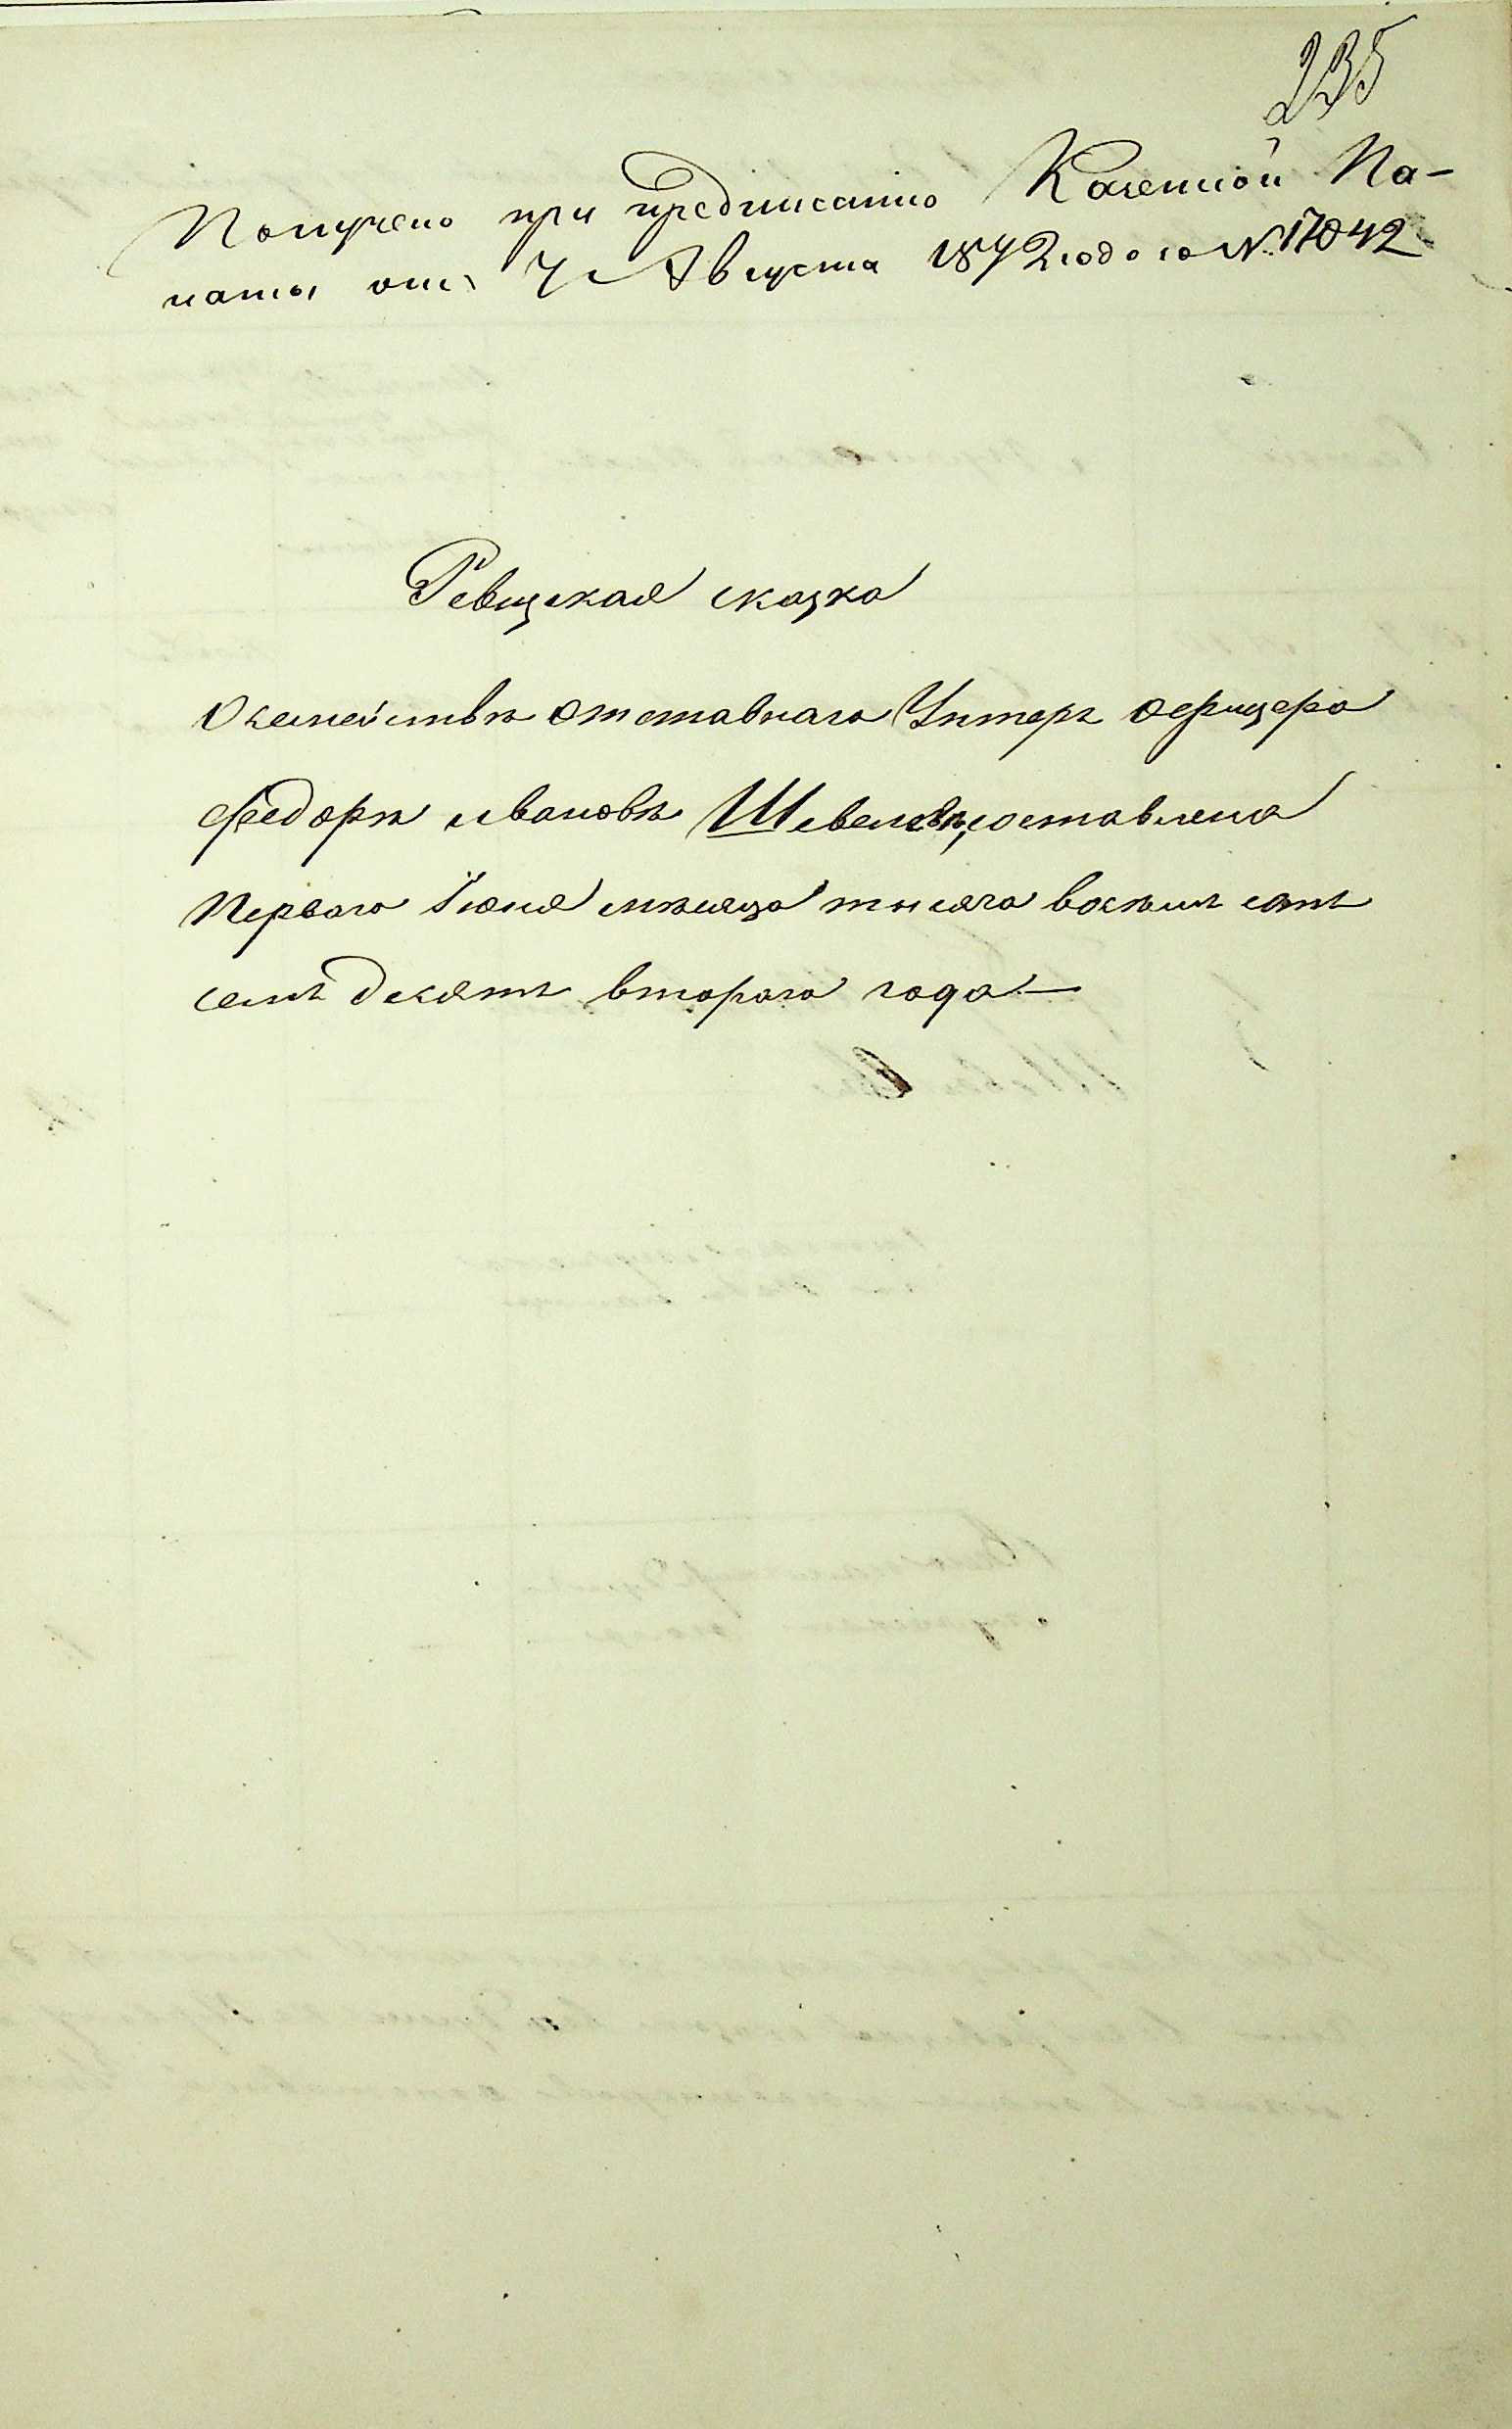 235
Получено при предписанiю Казенной Па-
латы отъ 7 Августа 1872 года за №17042
Ревизская сказка
О семействѣ отставнаго Унтеръ офицера
Федорѣ ивановѣ Шевелевѣ, составлена
Перваго Їюня мѣсяца тысяча восѣмь сотъ
семь десятъ втораго года —